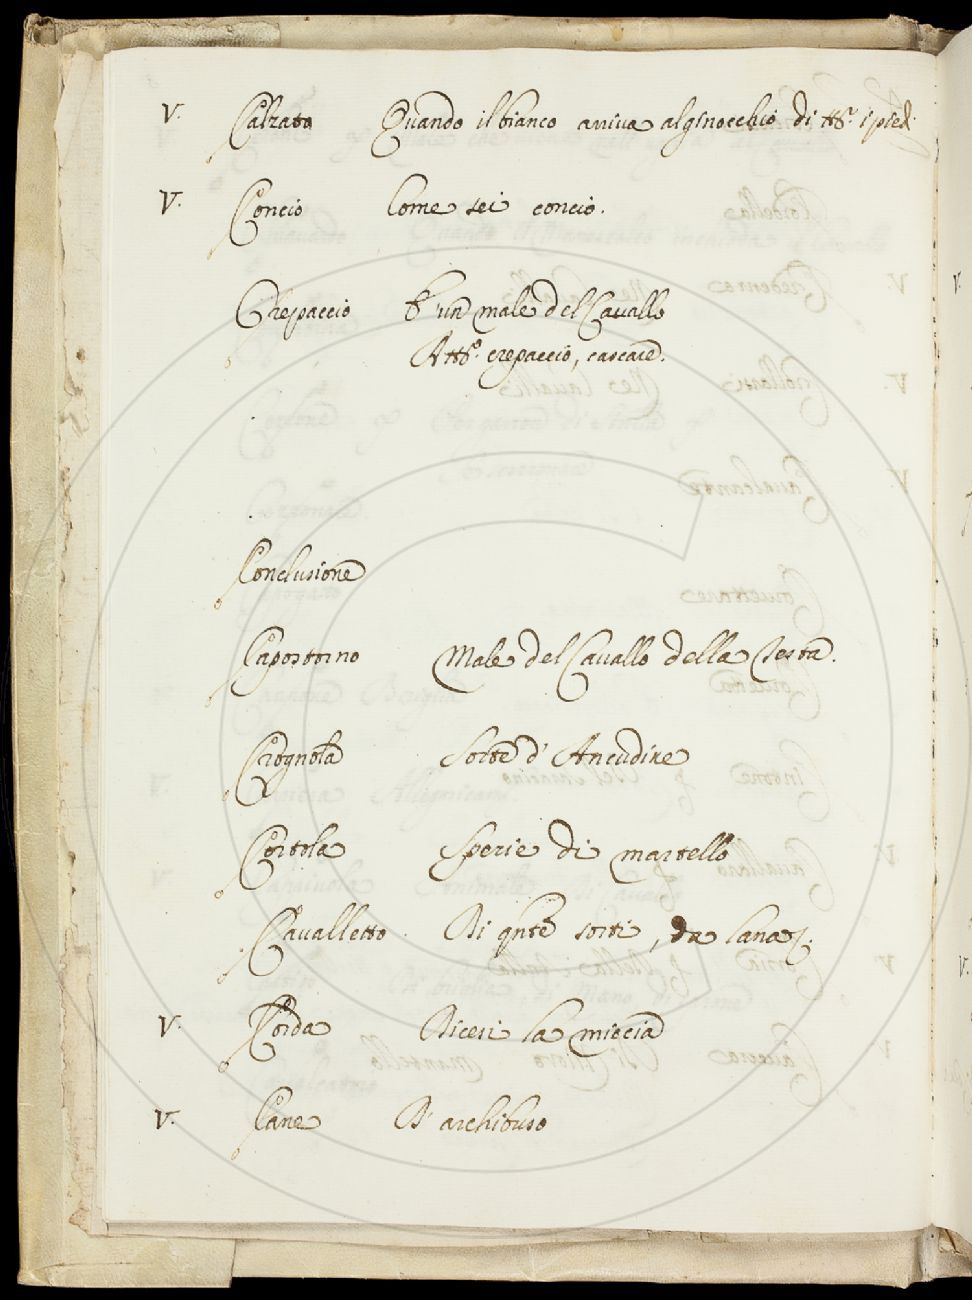 V. Calzato Quando il bianco arriva al ginocchio di tt.ⁱ i pied.
V. Concio Come sei concio.
Crepaccio È un male del Cavallo
Att.º crepaccio, cascare.
Conclusione
Capostorno Male del Cavallo della Testa.
Crognola Sorte d'Ancudine
Cortola Sperie di martello
Cavalletto. Di qnte sorti, da lana
V. Corda Dicesi la miccia
V. Cane D'archibuso
V.
V.